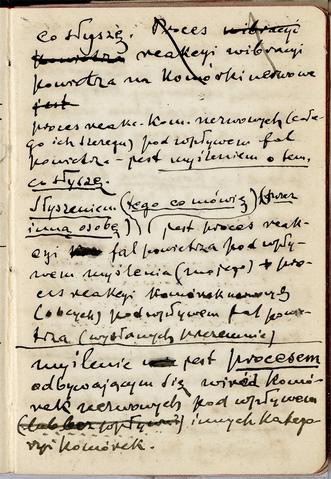 co słyszę. Proces wibracji
powietrza reakcyi wibracyi
powietrza na komórki nerwowe
jest
proces reak. kom. nerwowych (całe-
go ich szeregu) pod wpływem fal
powietrza - jest myśleniem o tem,
co słyszę.
Słyszeniem (tego co mówią) (przez
inną osobę) ( jest proces reak-
cyi fal powietrza pod wpły-
wem myślenia (mojego) + pro-
ces reakcyi komórek nerwowych
(obcych) pod wpływem fal powie-
trza (wysłanych przezemnie)
myślenie jest procesem
odbywającym się wśród komó-
rek nerwowych pod wpływem
(lub bez wpływu) innych katego-
ryi komórek.